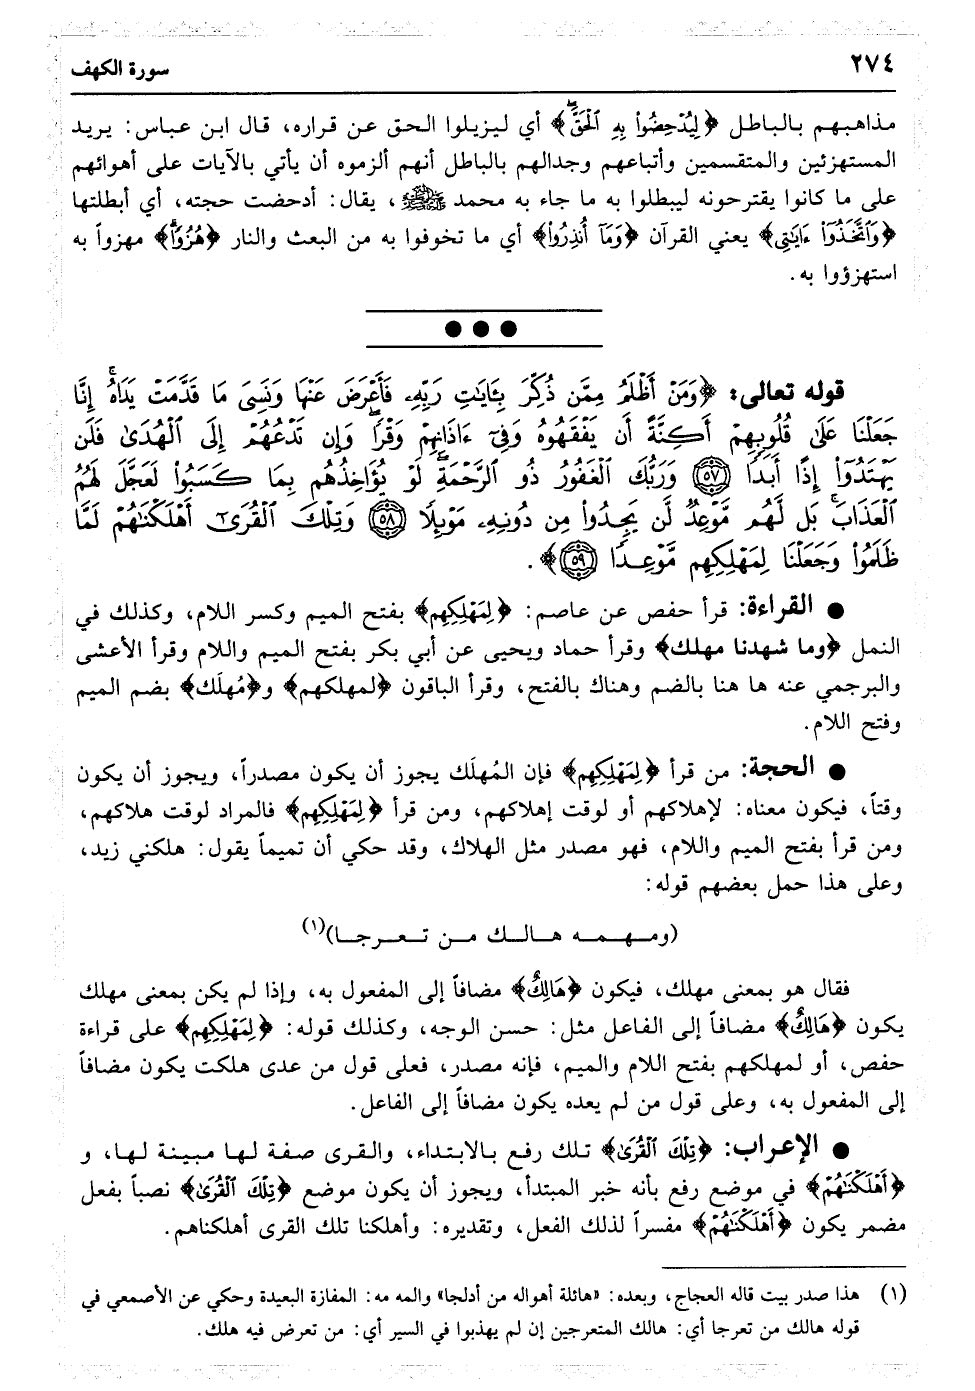 ٢٧٤
سورة الكهف
مذاهبهم بالباطل ﴿لِيُدْحِضُوا۟ بِهِ ٱلْحَقَّ﴾ أي ليزيلوا الحق عن قراره، قال ابن عباس: يريد
المستهزئين والمتقسمين وأتباعهم وجدالهم بالباطل أنهم ألزموه أن يأتي بالآيات على أهوائهم
على ما كانوا يقترحونه ليبطلوا به ما جاء به محمد ﷺ، يقال: أدحضت حجته، أي أبطلتها
﴿وَٱتَّخَذُوٓا۟ ءَايَـٰتِى﴾ يعني القرآن ﴿وَمَآ أُنذِرُوا۟﴾ أي ما تخوفوا به من البعث والنار ﴿هُزُوًا﴾ مهزواً به
استهزؤوا به.
●●●
قوله تعالى: ﴿وَمَنْ أَظْلَمُ مِمَّن ذُكِّرَ بِـَٔايَـٰتِ رَبِّهِۦ فَأَعْرَضَ عَنْهَا وَنَسِىَ مَا قَدَّمَتْ يَدَاهُ ۚ إِنَّا
جَعَلْنَا عَلَىٰ قُلُوبِهِمْ أَكِنَّةً أَن يَفْقَهُوهُ وَفِىٓ ءَاذَانِهِمْ وَقْرًا ۖ وَإِن تَدْعُهُمْ إِلَى ٱلْهُدَىٰ فَلَن
يَهْتَدُوٓا۟ إِذًا أَبَدًا ٥٧ وَرَبُّكَ ٱلْغَفُورُ ذُو ٱلرَّحْمَةِ ۖ لَوْ يُؤَاخِذُهُم بِمَا كَسَبُوا۟ لَعَجَّلَ لَهُمُ
ٱلْعَذَابَ ۚ بَل لَّهُم مَّوْعِدٌ لَّن يَجِدُوا۟ مِن دُونِهِۦ مَوْئِلًا ٥٨ وَتِلْكَ ٱلْقُرَىٰٓ أَهْلَكْنَـٰهُمْ لَمَّا
ظَلَمُوا۟ وَجَعَلْنَا لِمَهْلِكِهِم مَّوْعِدًا ٥٩﴾.
● القراءة: قرأ حفص عن عاصم: ﴿لِمَهْلِكِهِم﴾ بفتح الميم وكسر اللام، وكذلك في
النمل ﴿وما شهدنا مهلك﴾ وقرأ حماد ويحيى عن أبي بكر بفتح الميم واللام وقرأ الأعشى
والبرجمي عنه ها هنا بالضم وهناك بالفتح، وقرأ الباقون ﴿لمهلكهم﴾ و﴿مُهلَك﴾ بضم الميم
وفتح اللام.
● الحجة: من قرأ ﴿لِمَهْلِكِهِم﴾ فإن المُهلَك يجوز أن يكون مصدراً، ويجوز أن يكون
وقتاً، فيكون معناه: لإهلاكهم أو لوقت إهلاكهم، ومن قرأ ﴿لِمَهْلِكِهِم﴾ فالمراد لوقت هلاكهم،
ومن قرأ بفتح الميم واللام، فهو مصدر مثل الهلاك، وقد حكي أن تميماً يقول: هلكني زيد،
وعلى هذا حمل بعضهم قوله:
(ومهمه هالك من تعرجا)(١)
فقال هو بمعنى مهلك، فيكون ﴿هَالِكٌ﴾ مضافاً إلى المفعول به، وإذا لم يكن بمعنى مهلك
يكون ﴿هَالِكٌ﴾ مضافاً إلى الفاعل مثل: حسن الوجه، وكذلك قوله: ﴿لِمَهْلِكِهِم﴾ على قراءة
حفص، أو لمهلكهم بفتح اللام والميم، فإنه مصدر، فعلى قول من عدى هلكت يكون مضافاً
إلى المفعول به، وعلى قول من لم يعده يكون مضافاً إلى الفاعل.
● الإعراب: ﴿تِلْكَ ٱلْقُرَىٰ﴾ تلك رفع بالابتداء، والقرى صفة لها مبينة لها، و
﴿أَهْلَكْنَـٰهُمْ﴾ في موضع رفع بأنه خبر المبتدأ، ويجوز أن يكون موضع ﴿تِلْكَ ٱلْقُرَىٰ﴾ نصباً بفعل
مضمر يكون ﴿أَهْلَكْنَـٰهُمْ﴾ مفسراً لذلك الفعل، وتقديره: وأهلكنا تلك القرى أهلكناهم.
(١) هذا صدر بيت قاله العجاج، وبعده: «هائلة أهواله من أدلجا» والمه مه: المفازة البعيدة وحكي عن الأصمعي في
قوله هالك من تعرجا أي: هالك المتعرجين إن لم يهذبوا في السير أي: من تعرض فيه هلك.